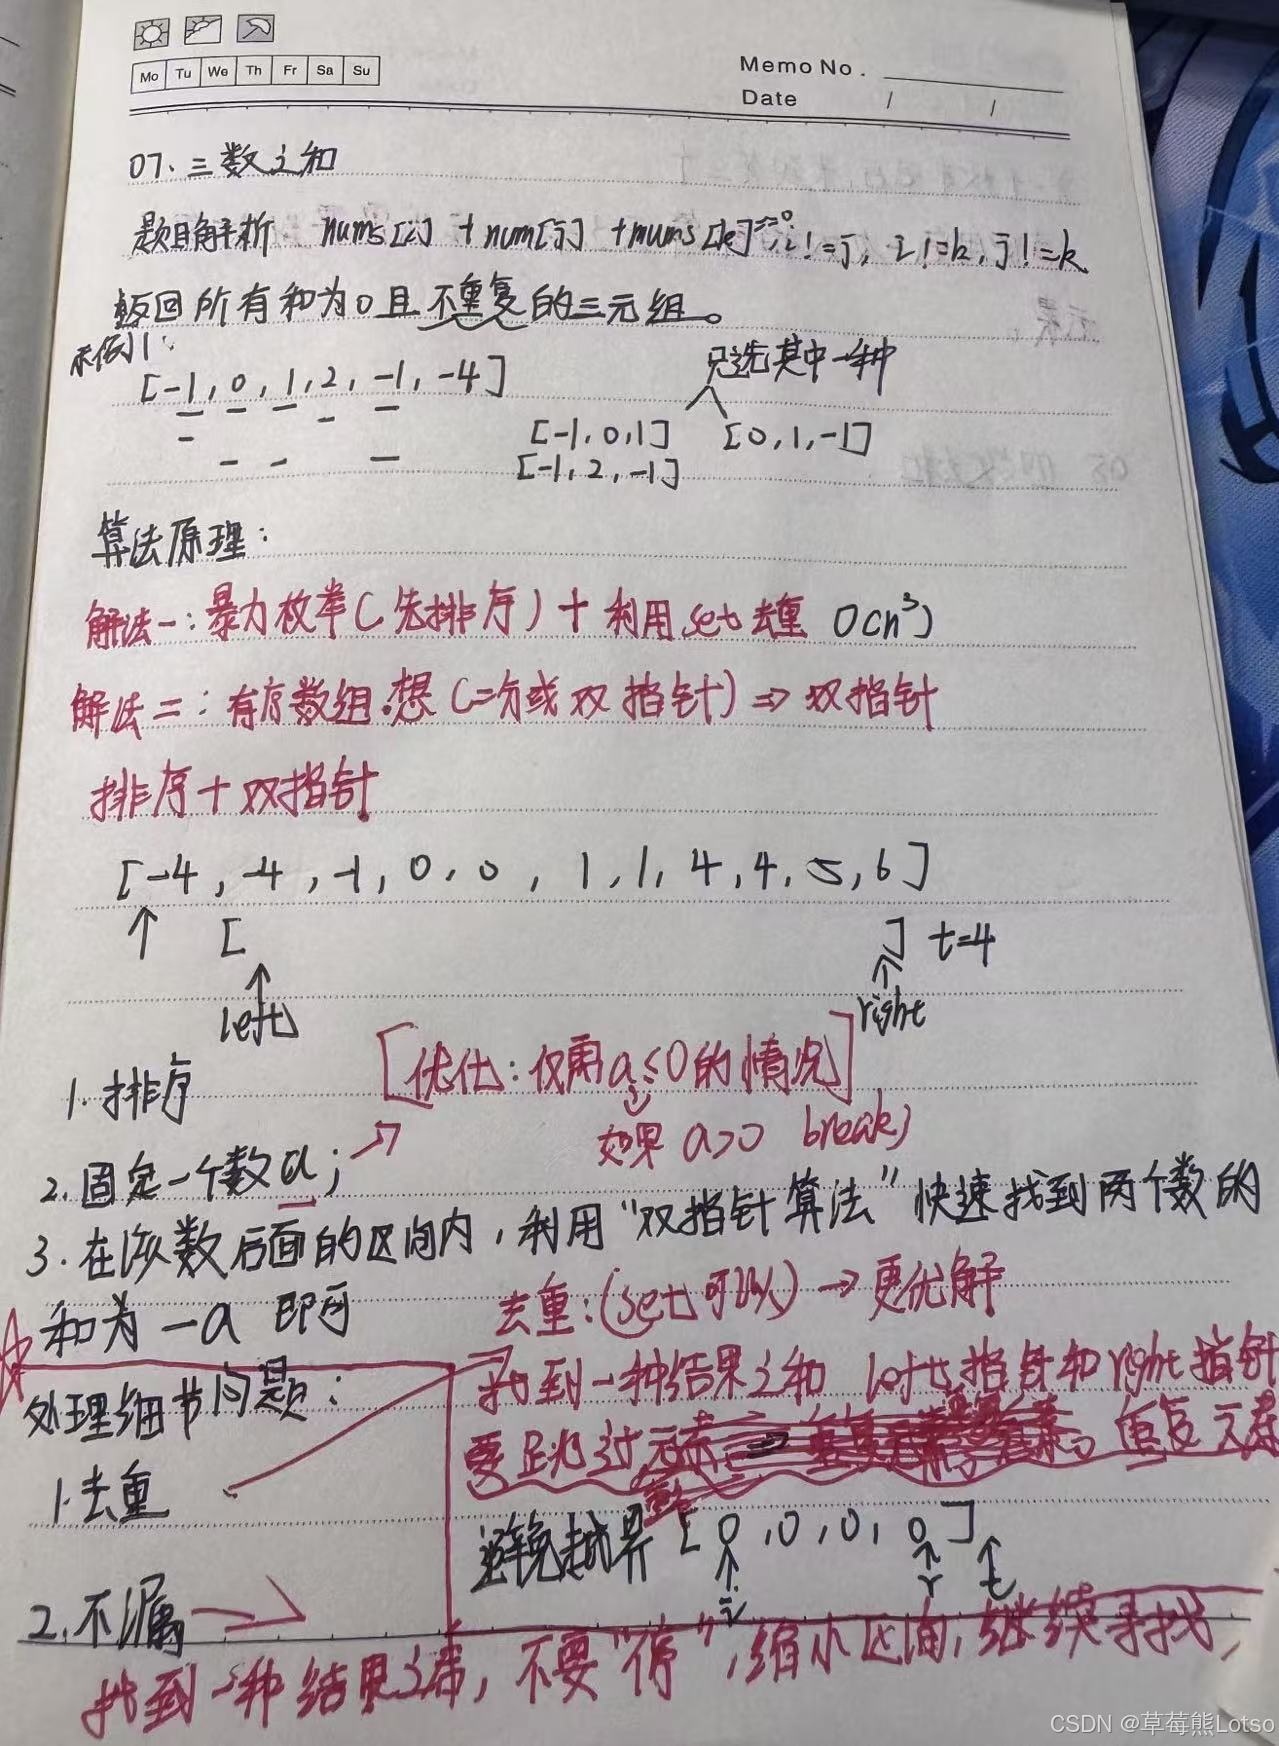 Mo Tu We Th Fr Sa Su
Memo No.
Date / /
07. 三数之和
题目解析 nums[i] + num[j] + nums[k] == 0, i != j, i != k, j != k
返回所有和为0且不重复的三元组。
示例1:
[-1, 0, 1, 2, -1, -4]
只选其中一种
[-1, 0, 1] [0, 1, -1]
[-1, 2, -1]
算法原理:
解法一: 暴力枚举(先排序) + 利用set去重 O(n³)
解法二: 有序数组.想(二分或双指针) ⇒ 双指针
排序+双指针
[-4, -4, -1, 0, 0, 1, 1, 4, 4, 5, 6]
[ ] t=4
left right
[优化: 仅需a≤0的情况]
1. 排序
如果 a>0 break)
2. 固定一个数a;
3. 在该数后面的区间内, 利用"双指针算法"快速找到两个数的
和为 -a 即可
去重: (set可以) → 更优解
处理细节问题:
找到一种结果之和 left指针和right指针
要跳过元素 重复元素
1. 去重
避免越界 [0, 0, 0, 0]
i r t
2. 不漏 →
找到一种结果之后, 不要"停", 缩小区间, 继续寻找,
CSDN @草莓熊Lotso